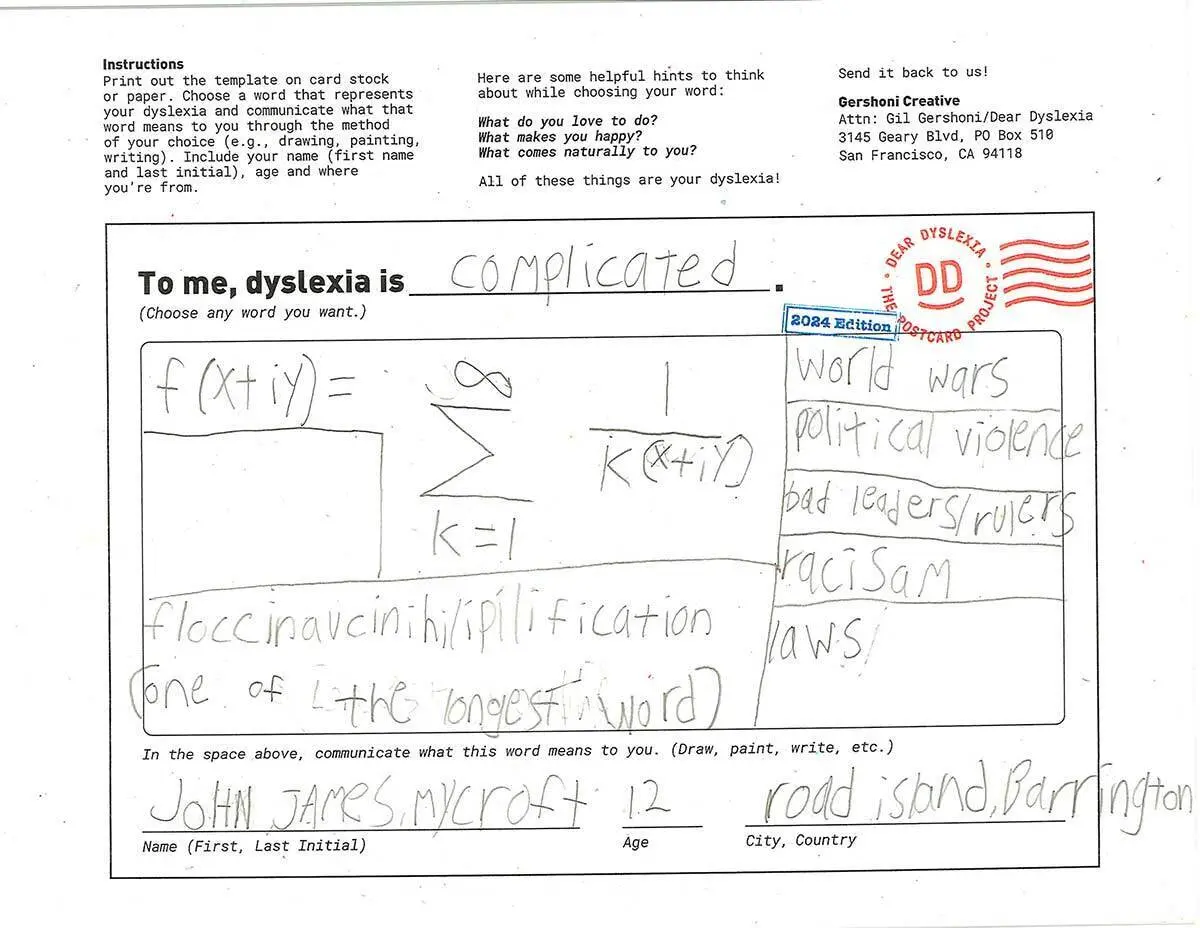 Instructions
Print out the template on card stock
or paper. Choose a word that represents
your dyslexia and communicate what that
word means to you through the method
of your choice (e.g., drawing, painting,
writing). Include your name (first name
and last initial), age and where
you're from.
Here are some helpful hints to think
about while choosing your word:
What do you love to do?
What makes you happy?
What comes naturally to you?
All of these things are your dyslexia!
Send it back to us!
Gershoni Creative
Attn: Gil Gershoni/Dear Dyslexia
3145 Geary Blvd, PO Box 510
San Francisco, CA 94118
To me, dyslexia is complicated.
(Choose any word you want.)
DEAR DYSLEXIA • THE POSTCARD PROJECT •
DD
2024 Edition
f(x+iy) =
∞
Σ
k=1
1
k(x+iy)
floccinaucinihilipilification
(one of the longest word)
world wars
political violence
bad leaders/rulers
racisam
laws
In the space above, communicate what this word means to you. (Draw, paint, write, etc.)
JOHN JAMES, MYCROFT
12
road island, Barrington
Name (First, Last Initial)
Age
City, Country